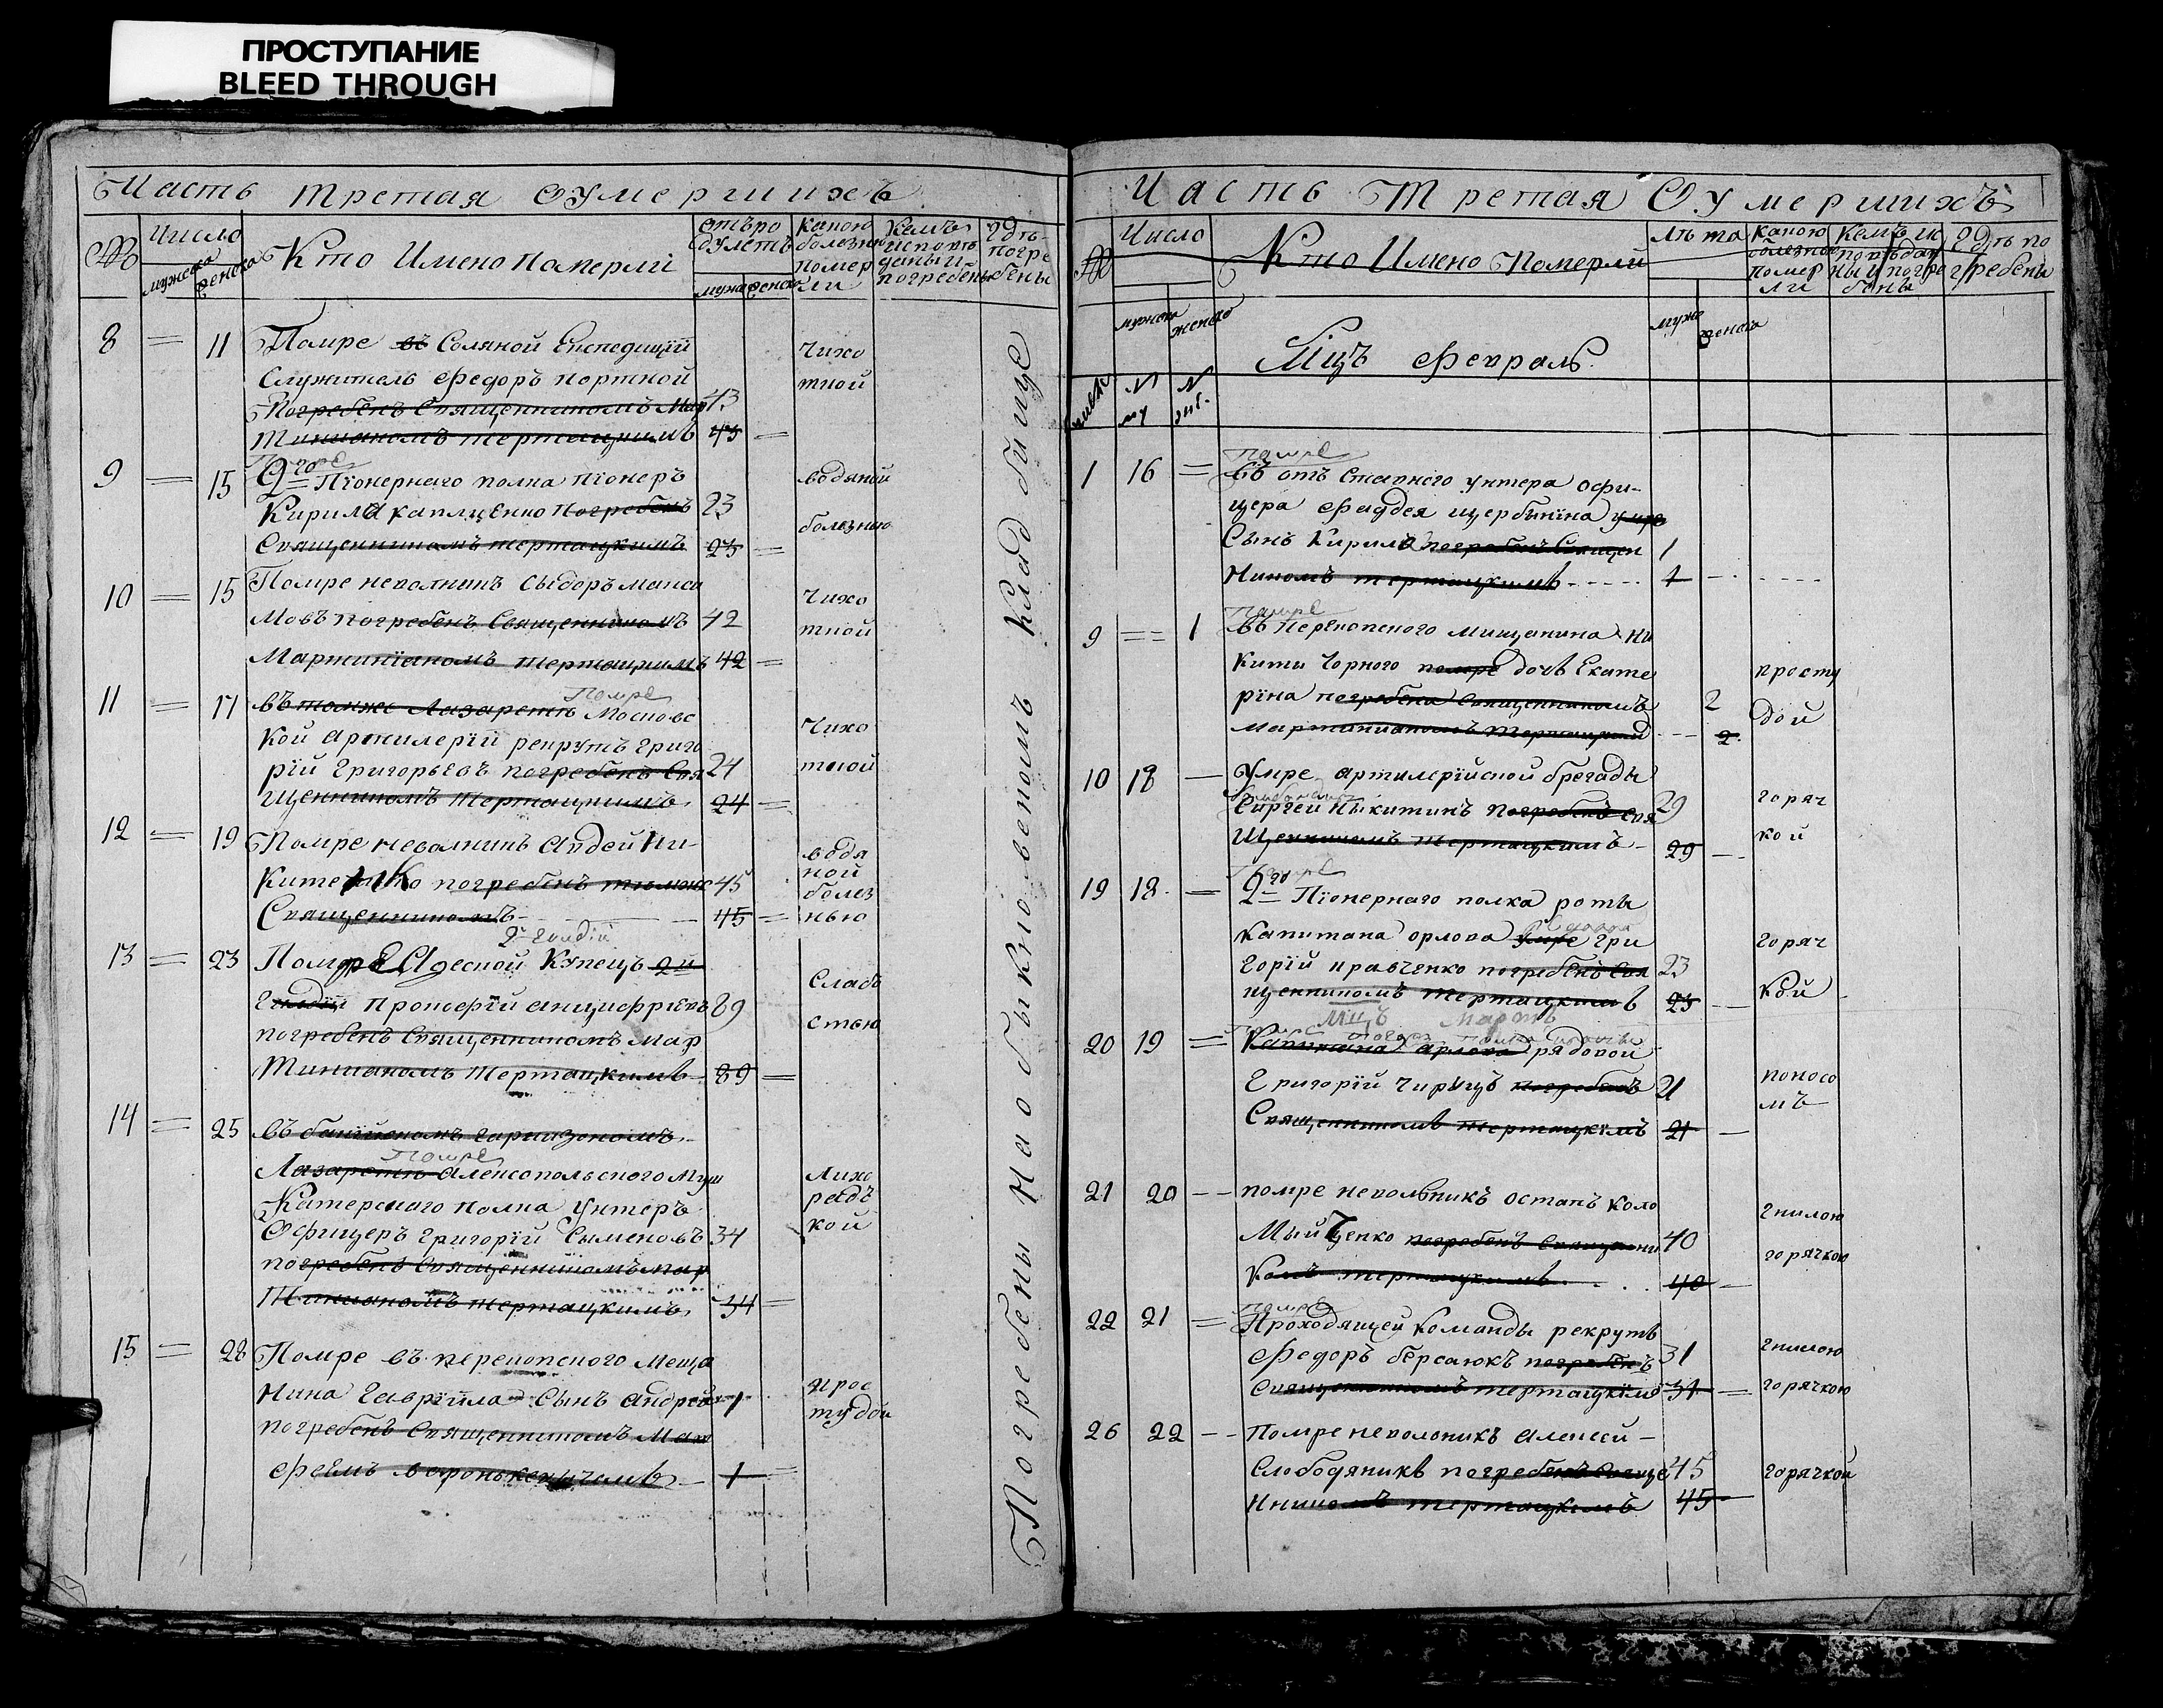 ПРОСТУПАНИЕ
BLEED THROUGH
Часть третая Оумершихъ
№
Число
мужеска
женска
Кто Имено Померли
отъро
дулетъ
мужеска
женска
Какою
болезню
помер
ли
Кемъ
исповѣ
даны и
погребены
гдѣ
погре
бены
8 = 11 Помре въ Соляной Експедицїй
Служитель Федоръ портной
Погребенъ Священникомъ Мар 43
Тинианомъ тертацкимъ 43
Чихо
тной
9 = 15 Помре
2го Піонернаго полка піонеръ
Кирила каплценко погребенъ 23
Священникомъ тертацкимъ 23
водяной
болезнью
10 = 15 Помре неволникъ Сыдоръ макси
мовъ погребенъ Священникомъ 42
Мартинїаномъ тертацкимъ 42
Чихо
тной
11 = 17 въ томже Лазаретѣ Помре Московс
кой аржилерїй рекрутъ григо
рїй григорьевъ погребенъ Свя 24
щенникомъ тертацкимъ 24
Чихо
тной
12 = 19 Помре неволникъ Авдей Ни
Китенко погребенъ темже 45
Священникомъ 45
водя
ной
болез
нью
13 = 23 Помре Адеской Купецъ 2й 2й гилдїй
Гилдїи Прокофїй анциферовъ 89
погребенъ Священникомъ Мар
Тинианомъ тертацкимъ 89
Слабо
стью
14 = 25 въ гарнизономъ
Лазаретѣ Помре Алексопольского муш
Катерского полка унтеръ
Офицеръ григорїй Сыменовъ 34
погребенъ Священникомъ мар
Тинианомъ тертацкимъ 34
Лихо
радъ
кой
15 = 28 Помре въ перекопского Меща
нина Гаврїила Сынъ андрей 1
погребенъ Священникомъ Мат
феемъ 1
прос
тудой
Погребены на обыкновеномъ кладбище
Часть Третая Оумершихъ
№
Число
мужеска
женско
Кто Имено Померли
Лѣта
муже
женска
Какою
болезнью
помер
ли
Кемъ ис
повѣдан
ны и погре
бены
гдѣ по
гребены
Мцъ Февраль
число
№
му
№
жи.
1 16 = Помре
въ отъ Ставного унтера офи-
цера Фаддея щербынїна умре
Сынъ Кирила погребенъ Священ 1
Никомъ тертацкимъ 1
9 == 1 Помре
въ перекопского мищанина Ни
Киты Чорного помре дочь Екате
рїна погребена Священникомъ 2
Мартинианомъ тертацким 2
просту
дой
10 18 — Умре артилерїйской брегады
Сиргей Никитинъ погребенъ Свя 29
Щенникомъ тертацкимъ 29
горяч
кой
19 18 — Помре
2го Піонернаго полка роты
Капитана орлова умре гри
горїй кравченко погребенъ Свя 23
щенникомъ тертацкимъ 23
горяч
кой
Мцъ Мартъ
20 19 = Капитана орлова рядовой
Григорїй погребенъ 21
Священникомъ тертацкимъ 21
поносо
мъ
21 20 — помре неволникъ остапъ Коло
Мыйченко погребенъ Священни 40
Комъ тертацкимъ 40
гнилою
горячкою
22 21 = Помре
Проходящей Команды рекрутъ
Федоръ берсаюкъ погребенъ 31
Священникомъ тертацкимъ 31
гнилою
горячкою
26 22 — Помре неволникъ алексей
Слободяникъ погребенъ Свяще 45
Нникомъ тертацкимъ 45
горячкой